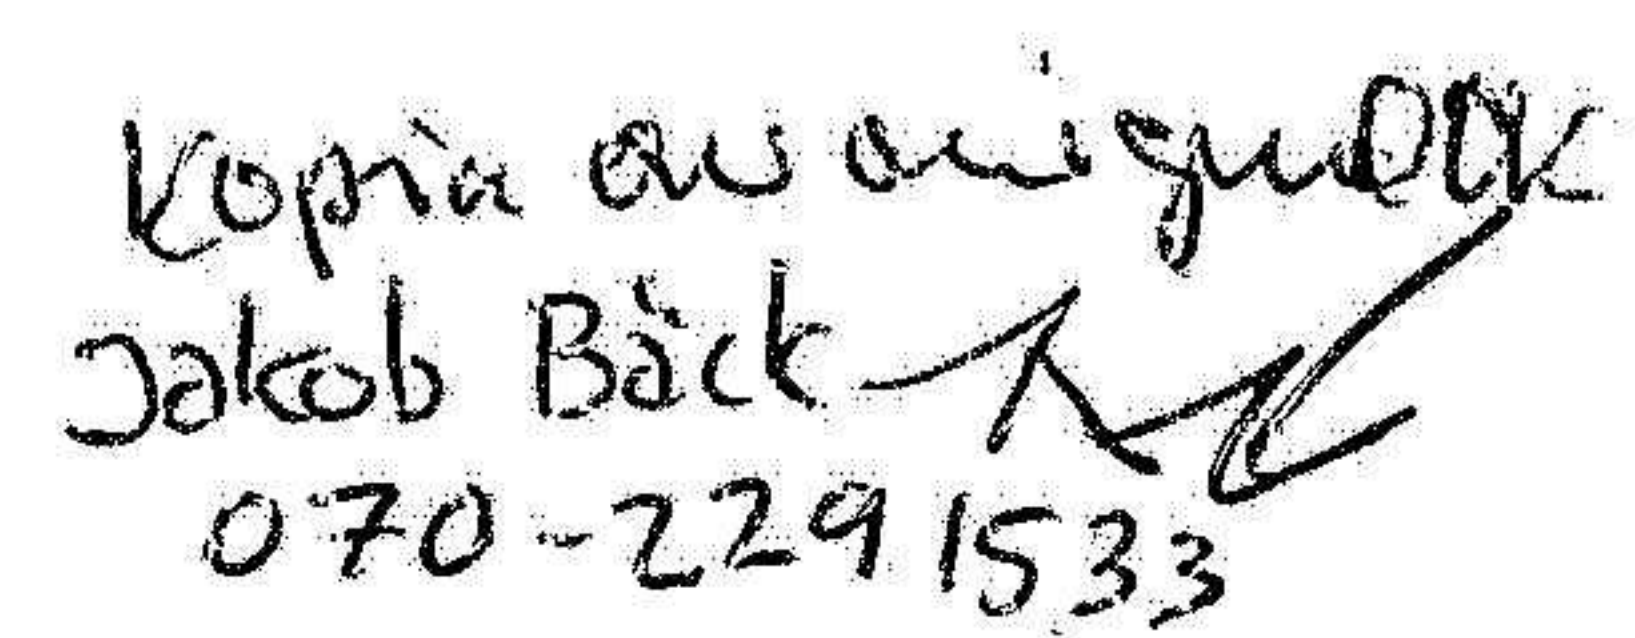 Kopia av original
Jakob Bäck
070-229 1533